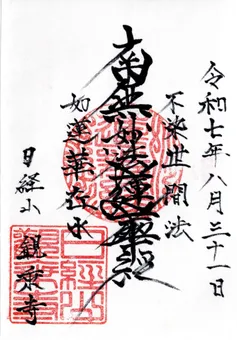 令和七年八月三十一日
不染世間法
南無妙法蓮華経
如蓮華在水
日経山
観音寺